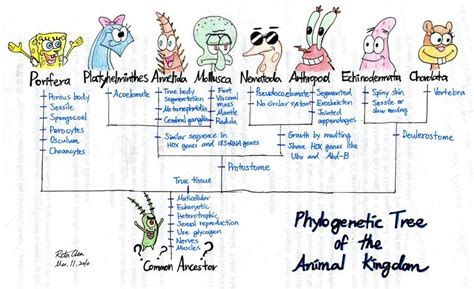 Porifera
Platyhelminthes
Annelida
Mollusca
Nematoda
Arthropod
Echinodermata
Chordata
Porous body
Sessile
Spongocoel
Porocytes
Osculum
Choanocytes
Acoelomate
True body
segmentation
Metanephridia
Cerebral ganglia
Foot
Visceral
mass
Mantle
Radula
Pseudocoelomate
No circular system
Segmented
Exoskeleton
Jointed
appendages
Spiny skin
Sessile or
slow moving
Vertebra
Similar sequence in
HOX genes and 18S rRNA genes
Growth by moulting
Share HOX genes like
Ubx and Abd-B
Deuterostome
Protostome
True tissue
Multicellular
Eukaryotic
Heterotrophic
Sexual reproduction
Use glycogen
Nerves
Muscles
? ? ? ?
Common Ancestor
Mar. 11, 2010
Phylogenetic Tree
of the
Animal Kingdom